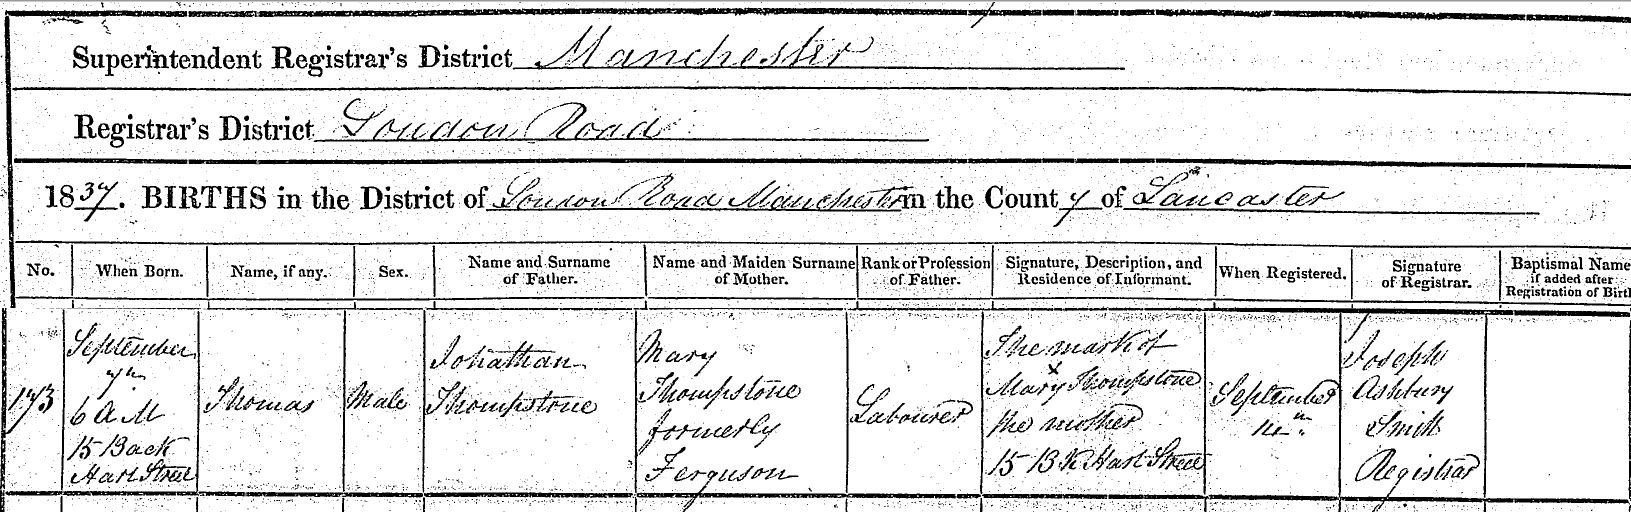 Superintendent Registrar's District Manchester
Registrar's District London Road
1837. BIRTHS in the District of London Road Manchester in the County of Lancaster
No.
When Born.
Name, if any.
Sex.
Name and Surname
of Father.
Name and Maiden Surname
of Mother.
Rank or Profession
of Father.
Signature, Description, and
Residence of Informant.
When Registered.
Signature
of Registrar.
Baptismal Name
if added after
Registration of Birth
173
September
7th
6 AM
15 Back
Hart Street
Thomas
Male
Jonathan
Thompstone
Mary
Thompstone
formerly
Ferguson
Labourer
The mark of
x
Mary Thompstone
the mother
15 BK Hart Street
September
Joseph
Ashbury
Smith
Registrar